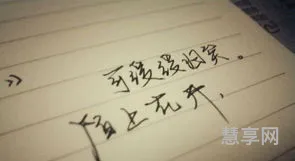 可缓缓归矣。
陌上花开，
慧享网